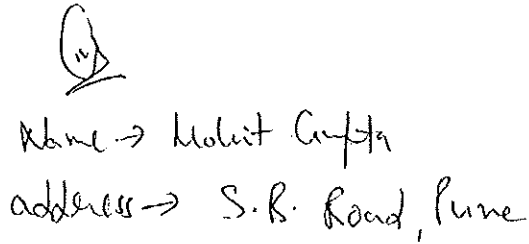 Name → Mohit Gupta
address → S.B. Road, Pune